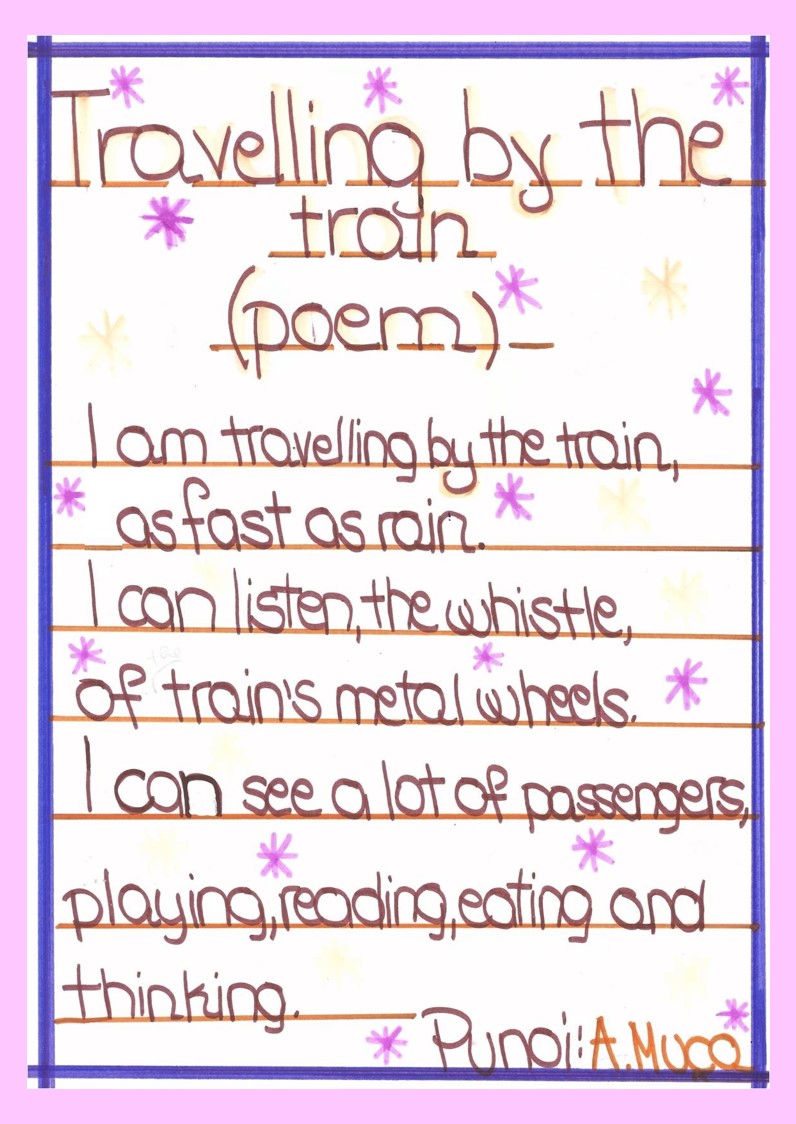 Travelling by the
train
(poem)
I am travelling by the train,
as fast as rain.
I can listen, the whistle,
of train's metal wheels.
I can see a lot of passengers,
playing, reading, eating and
thinking.
Punoi: A.Muço